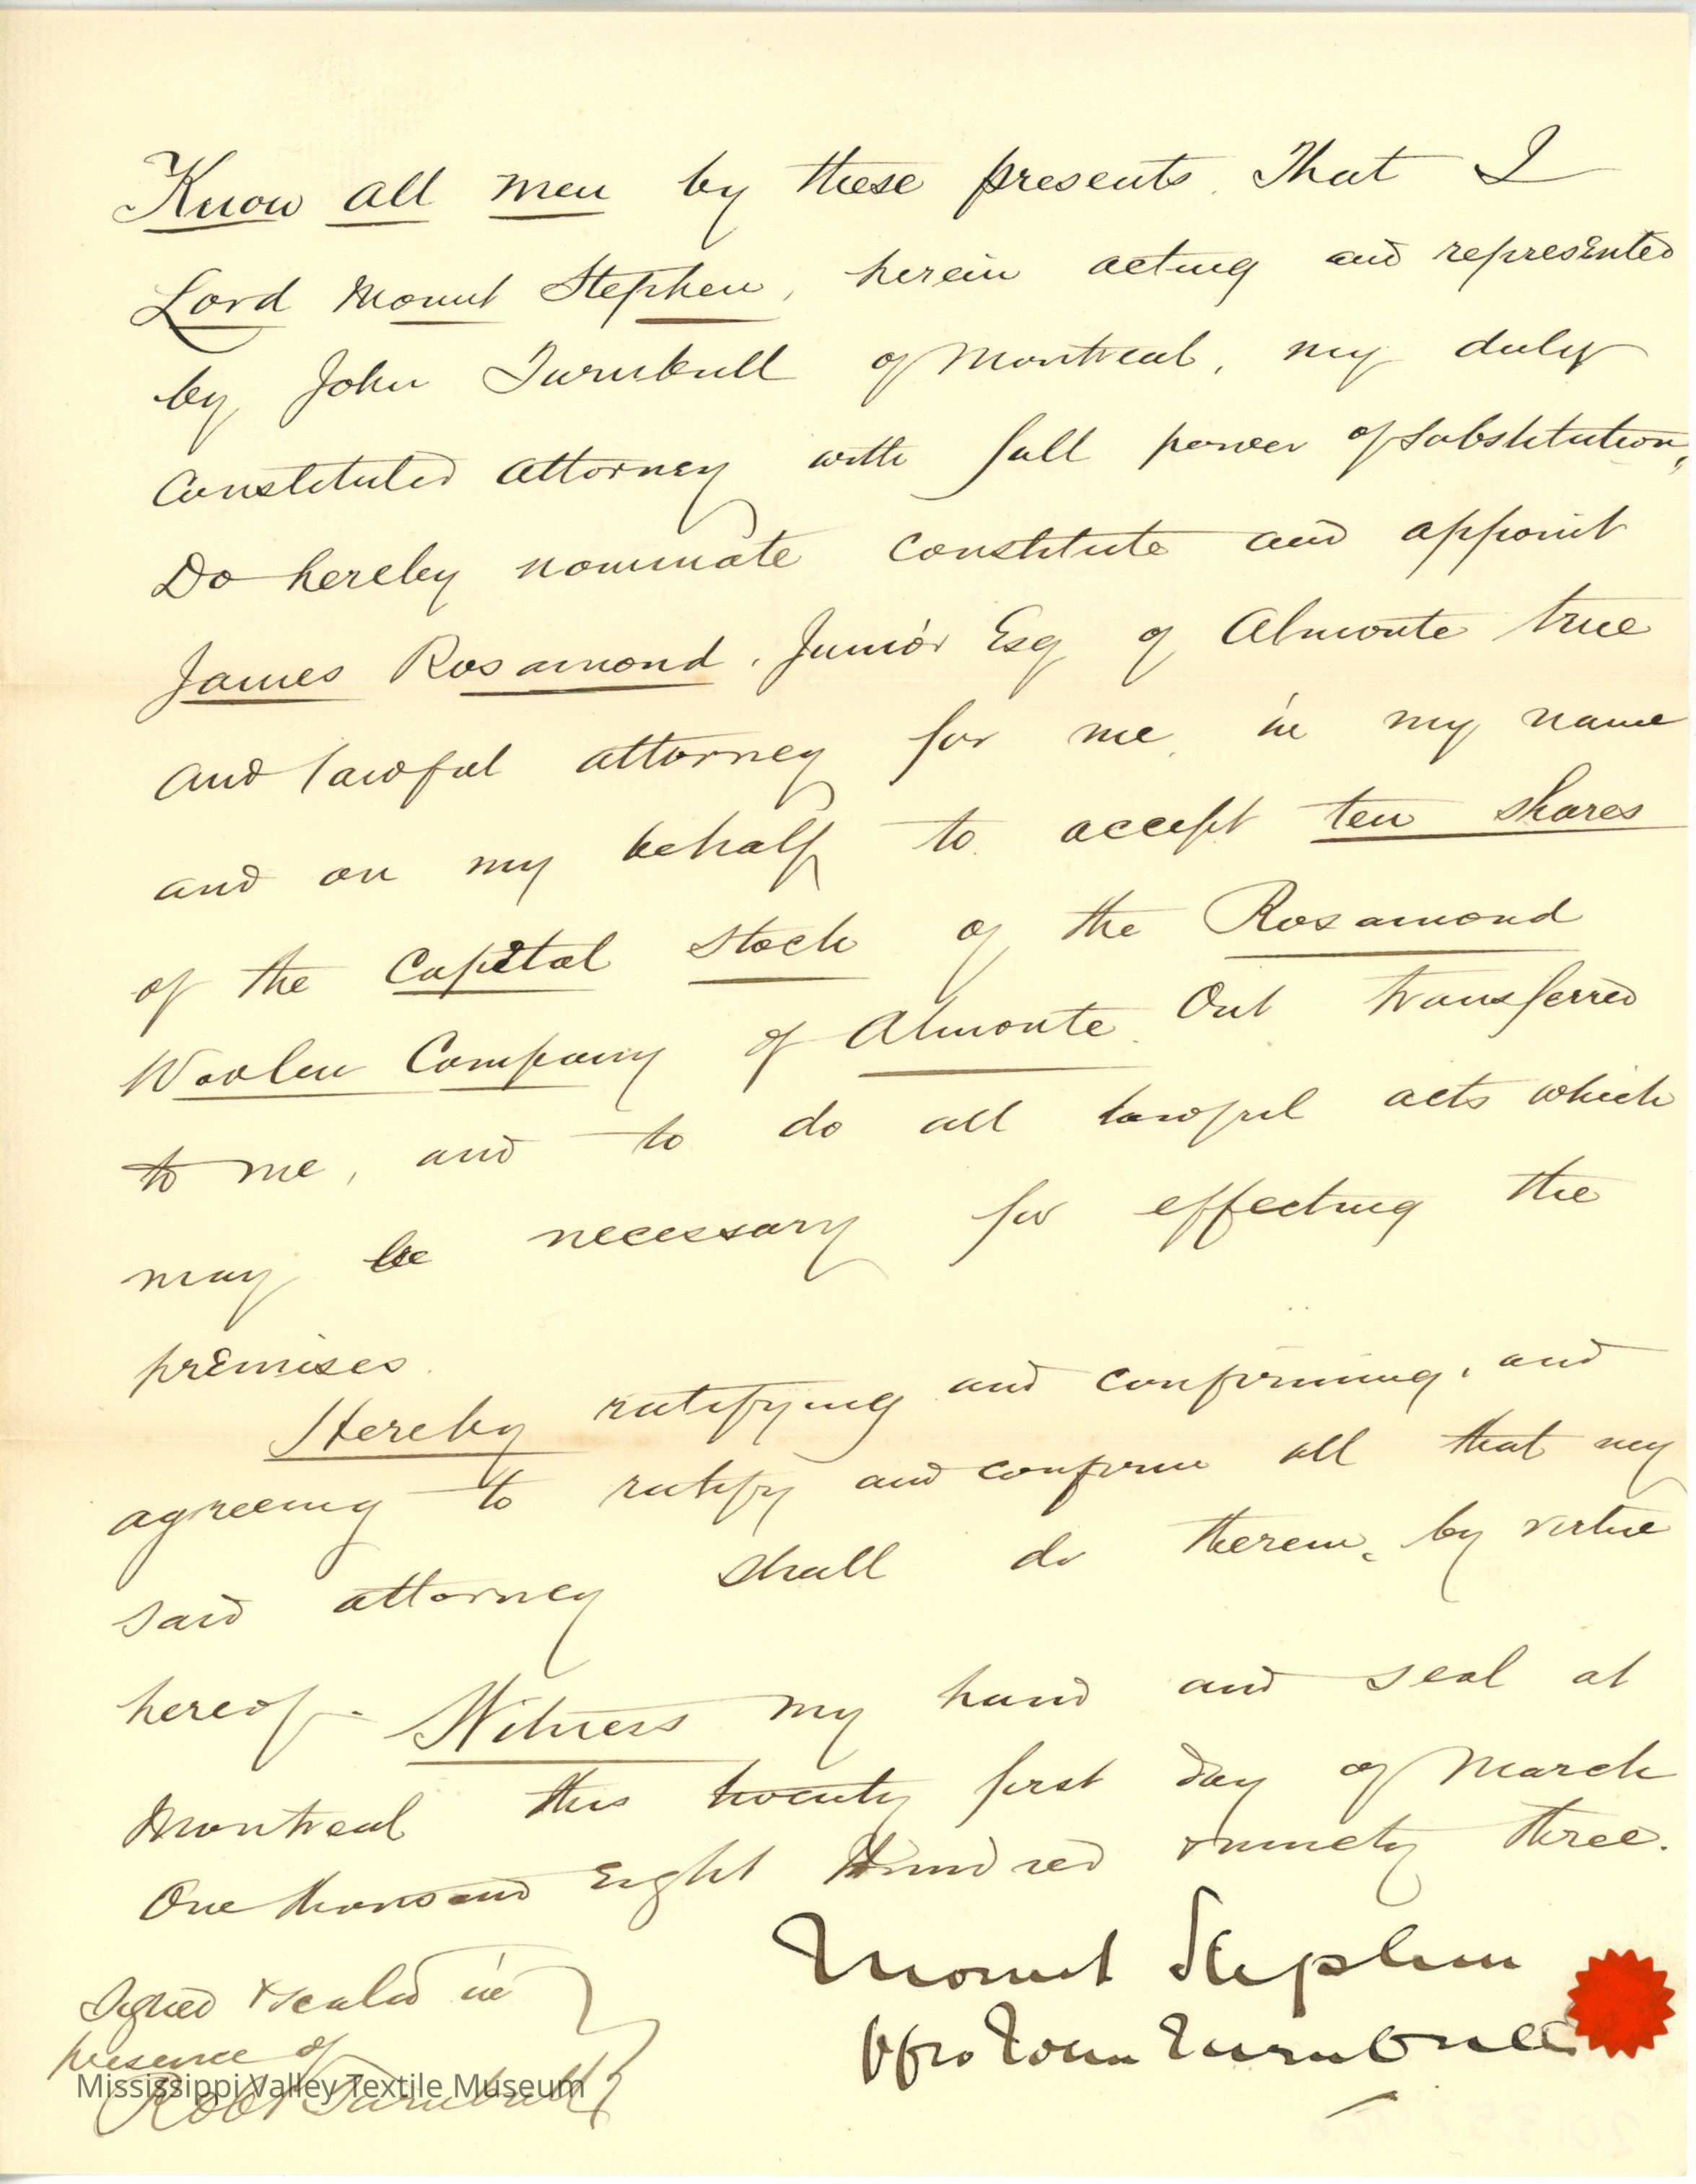 Know all men by these presents. That I
Lord Mount Stephen, herein acting and represented
by John Turnbull of Montreal, my duly
Constituted Attorney with full power of substitution,
Do hereby nominate constitute and appoint
James Rosamond, Junior Esq of Almonte true
and lawful attorney for me, in my name
and on my behalf to accept ten shares
of the Capital Stock of the Rosamond
Woolen Company of Almonte. Out transferred
to me, and to do all lawful acts which
may be necessary for effecting the
premises.
Hereby ratifying and confirming, and
agreeing to ratify and confirm all that my
said attorney shall do therein, by virtue
hereof. Witness my hand and seal at
Montreal this twenty first day of March
One thousand Eight Hundred & ninety three.
Mount Stephen
ppro John Turnbull
Signed & sealed in
presence of
Robt Turnbull
Mississippi Valley Textile Museum